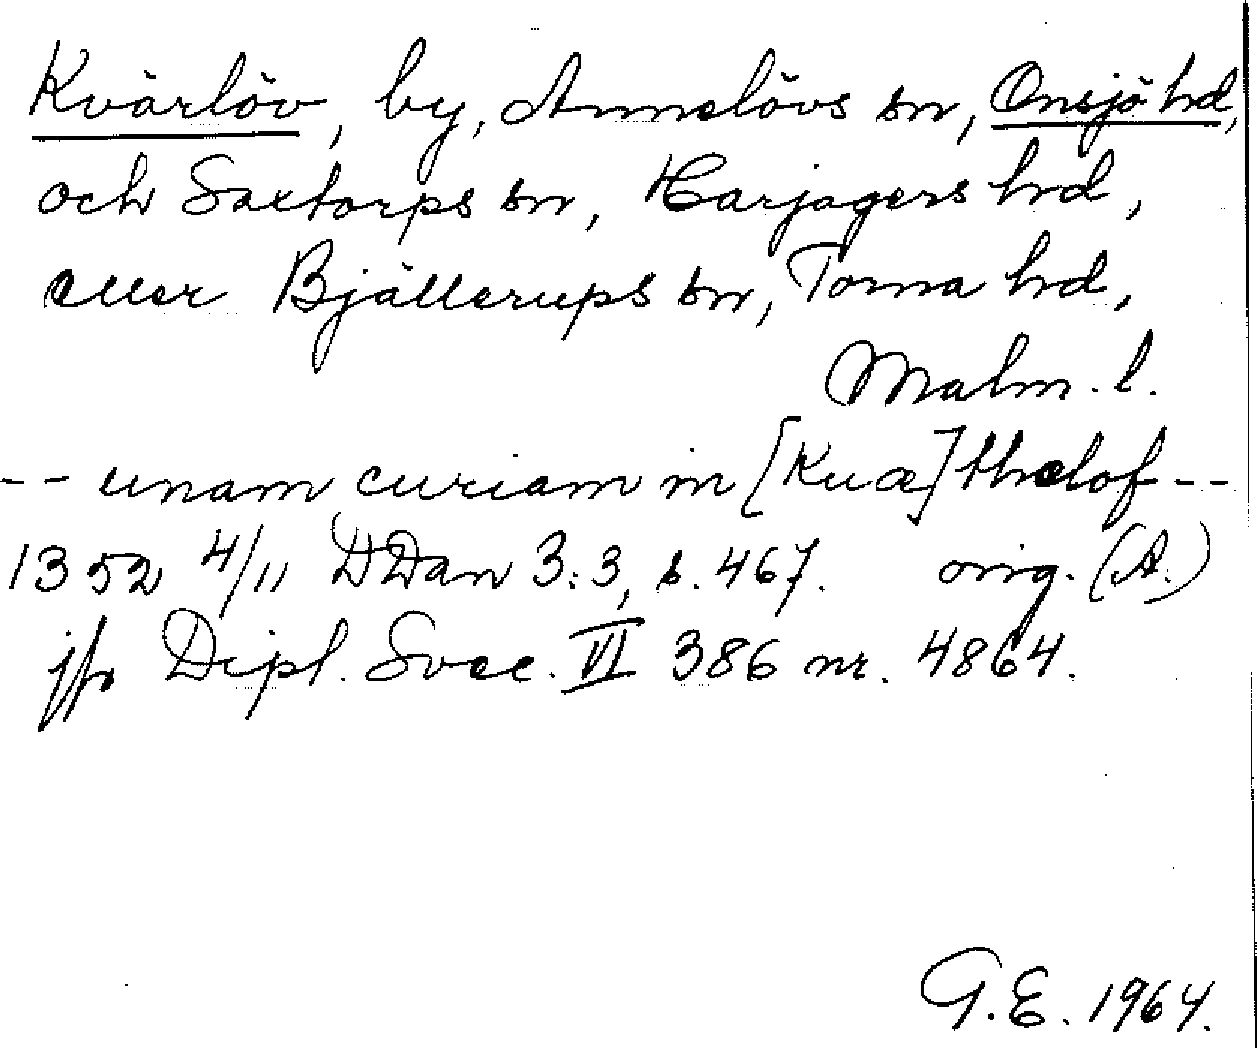 Kvärlöv, by, Annelövs sn, Onsjö hd,
och Saxtorps sn, Harjagers hd,
eller Bjällerups sn, Torna hd,
Malm. l.
-- unam curiam in [Kuæ]thelof --
1352 4/11 DDan 3:3, s. 467. orig. (A.)
jfr Dipl. Svec. VI 386 nr. 4864.
G.E. 1964.